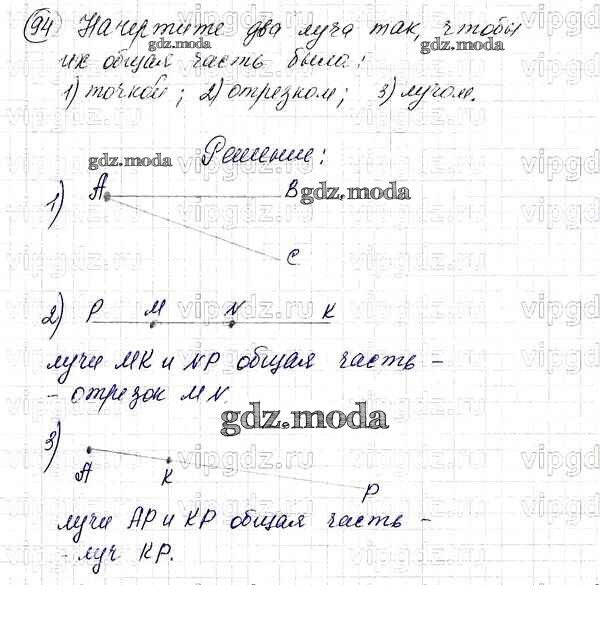 94) Начертите два луча так, чтобы
gdz.moda gdz.moda
их общая часть была:
1) точкой; 2) отрезком; 3) лучом.
vipgdz.ru
Решение:
gdz.moda
1) A B gdz.moda
C
vipgdz.ru
2) P M N K
лучи MK и NP общая часть -
vipgdz.ru
- отрезок MN.
gdz.moda
3)
A K P
лучи AP и KP общая часть -
- луч KP.
vipgdz.ru